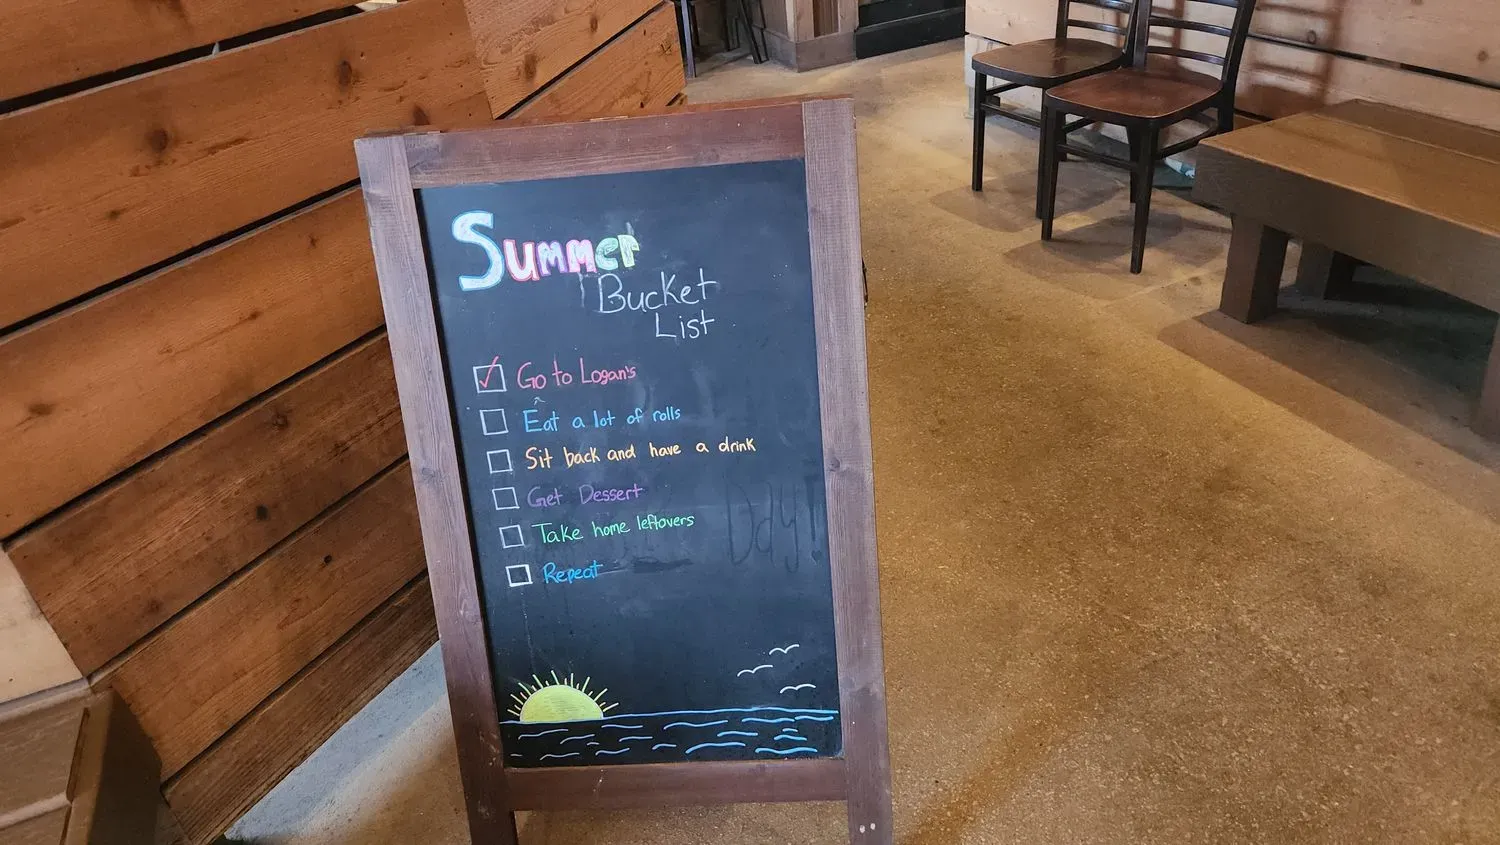 Summer
Bucket
List
Go to Logan's
Eat a lot of rolls
Sit back and have a drink
Get Dessert
Take home leftovers
Repeat
Day!